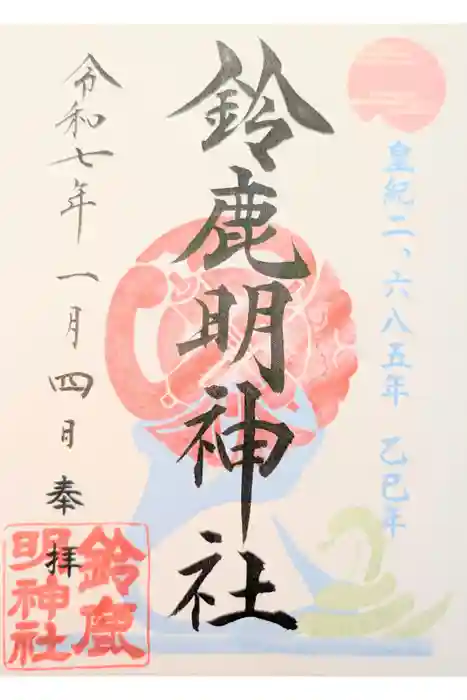 皇紀二、六八五年 乙巳年
鈴鹿明神社
令和七年 一月四日 奉拝
鈴鹿
明神社